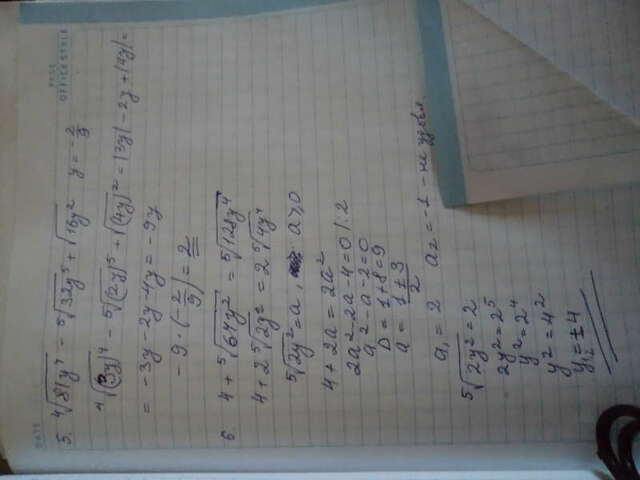 DATE
PAGE
OFFICE STYLE
5. ⁴√81y⁴ - ⁵√32y⁵ + √16y² y = -2/9
⁴√(3y)⁴ - ⁵√(2y)⁵ + √(4y)² = |3y| - 2y + |4y| =
= -3y - 2y - 4y = -9y
-9 · (-2/9) = 2
6. 4 + ⁵√64y² = ⁵√128y⁴
4 + 2 ⁵√2y² = 2 ⁵√4y⁴
⁵√2y² = a, a ≥ 0
4 + 2a = 2a²
2a² - 2a - 4 = 0 | : 2
a² - a - 2 = 0
D = 1 + 8 = 9
a = (1 ± 3)/2
a₁ = 2 a₂ = -1 - не удовл.
⁵√2y² = 2
2y² = 2⁵
y² = 2⁴
y² = 4²
y₁,₂ = ± 4